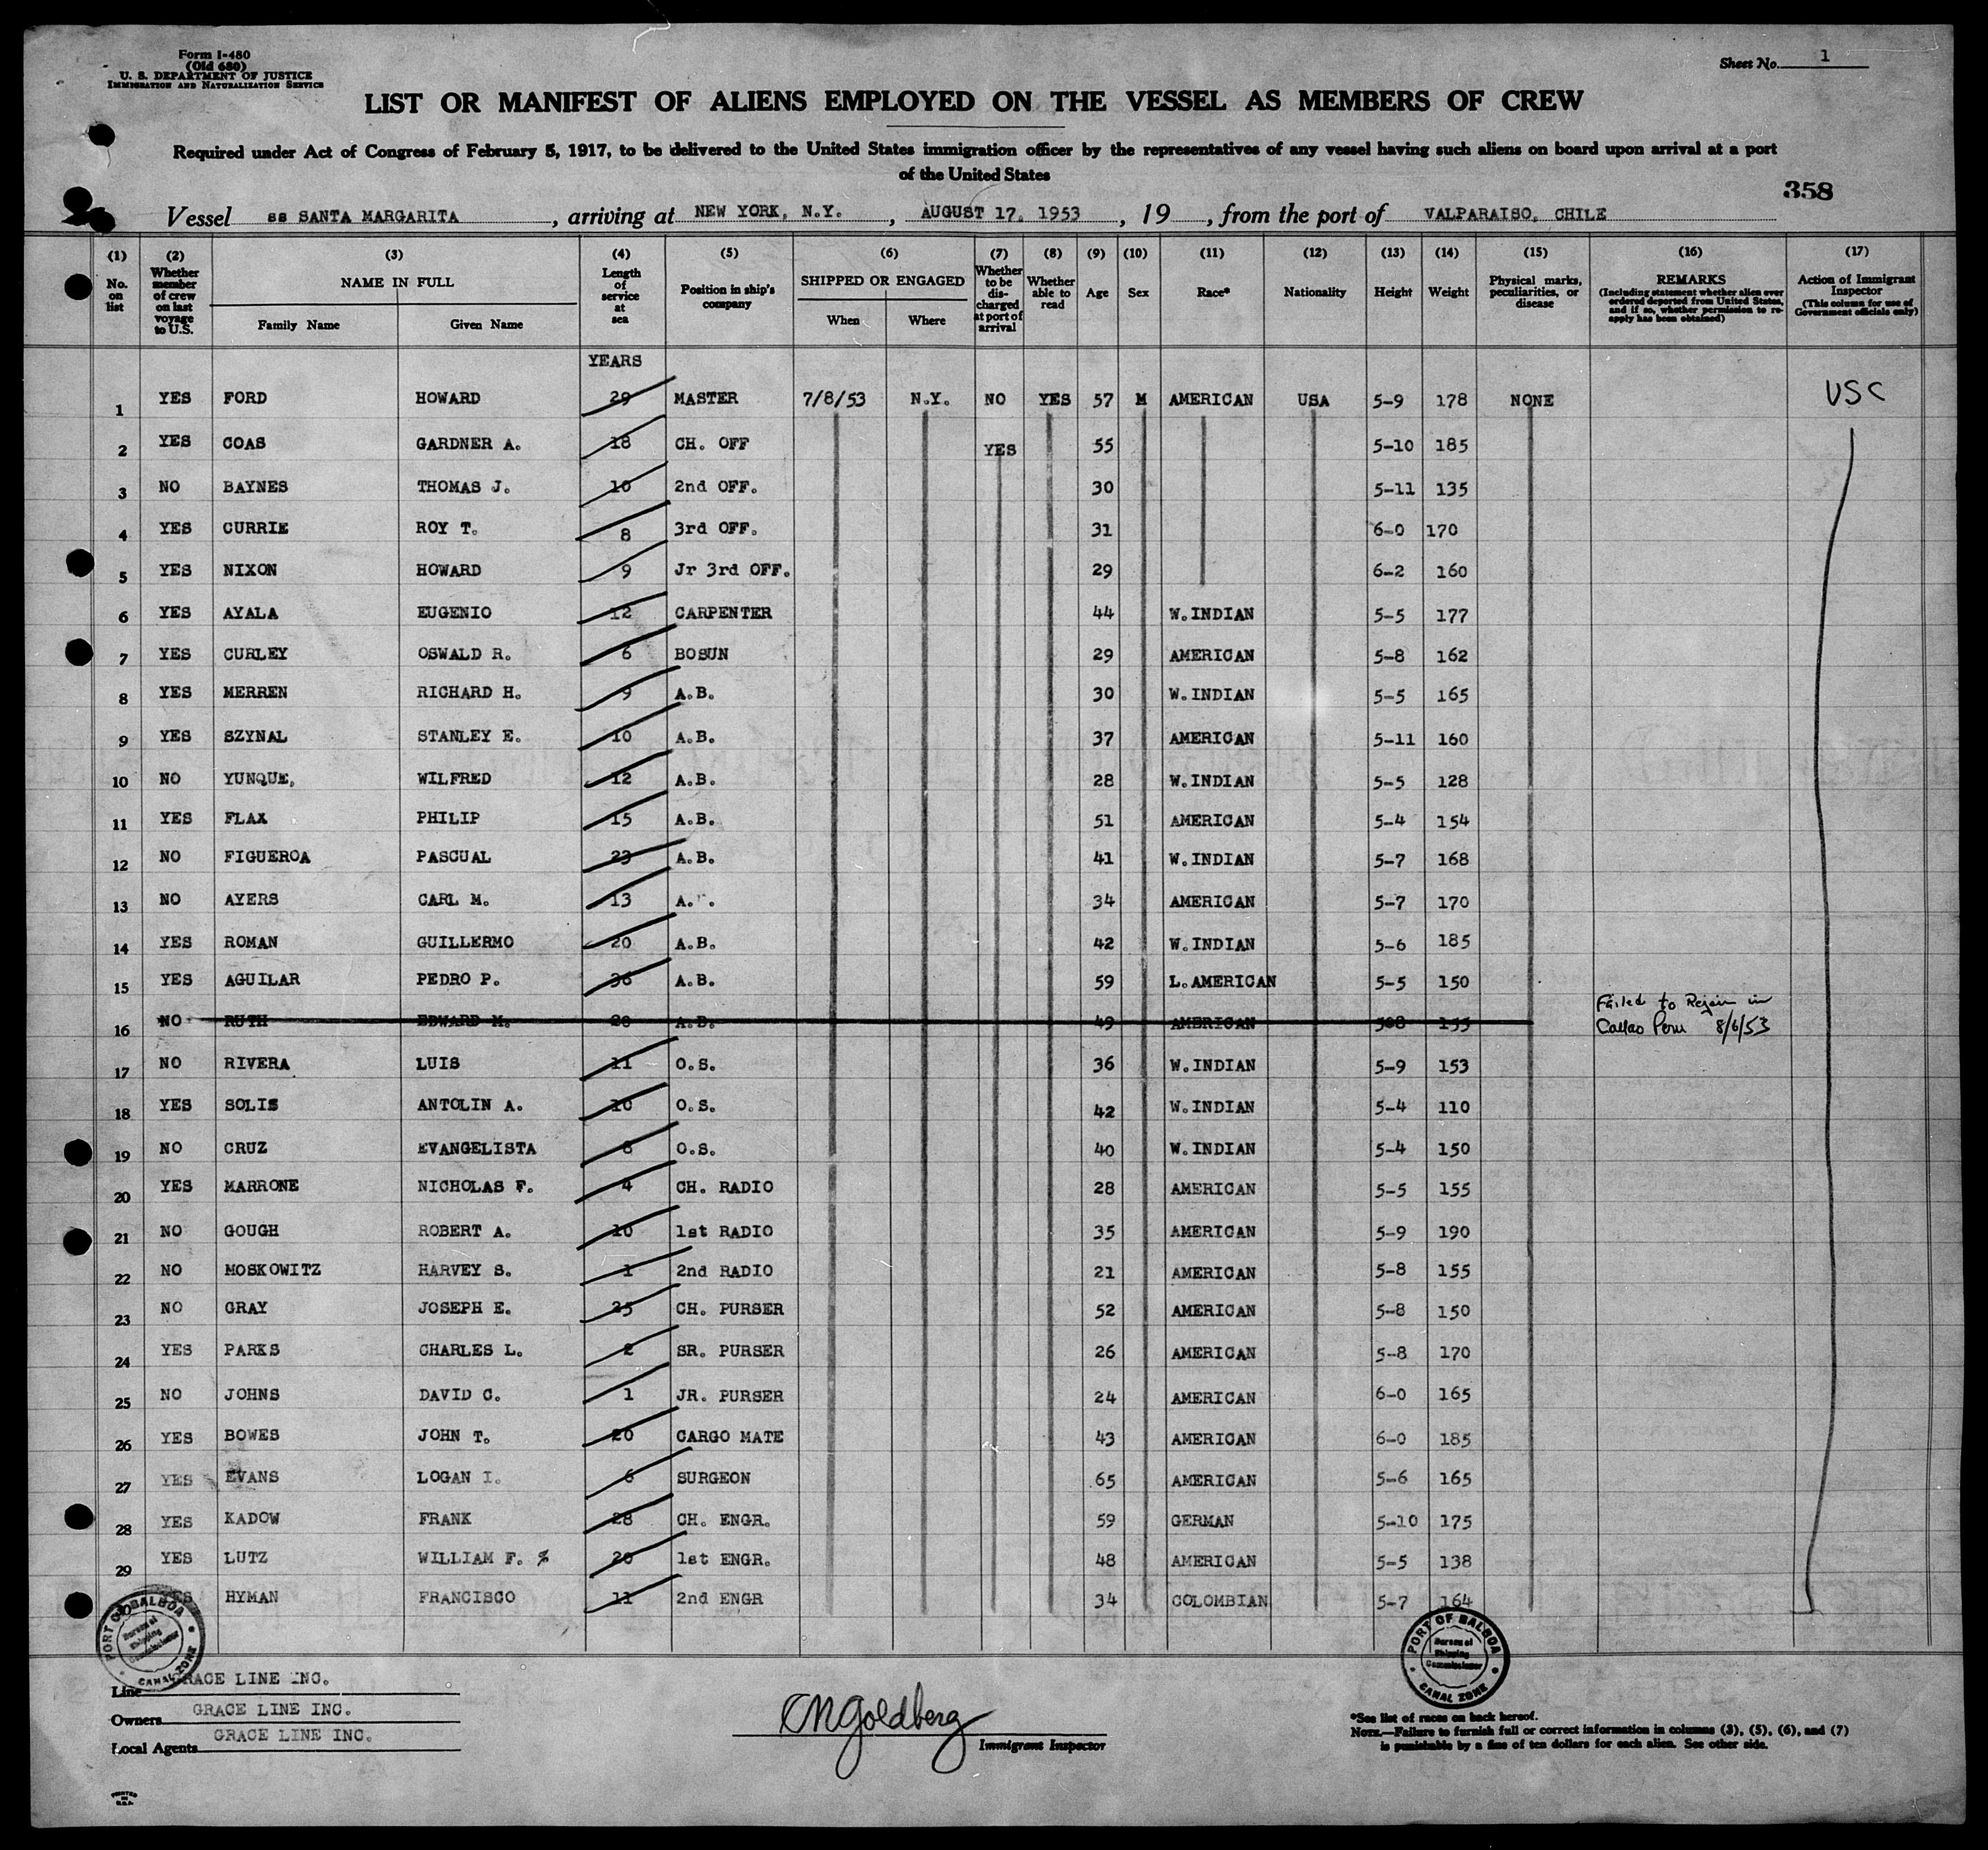 Form I-480
(Old 680)
U. S. DEPARTMENT OF JUSTICE
IMMIGRATION AND NATURALIZATION SERVICE
Sheet No. 1
LIST OR MANIFEST OF ALIENS EMPLOYED ON THE VESSEL AS MEMBERS OF CREW
Required under Act of Congress of February 5, 1917, to be delivered to the United States immigration officer by the representatives of any vessel having such aliens on board upon arrival at a port
of the United States
358
Vessel ss SANTA MARGARITA, arriving at NEW YORK, N.Y., AUGUST 17, 1953, 19, from the port of VALPARAISO, CHILE
(1) (2) (3) (4) (5) (6) (7) (8) (9) (10) (11) (12) (13) (14) (15) (16) (17)
No. on list
Whether member of crew on last voyage to U.S.
NAME IN FULL
Family Name Given Name
Length of service at sea
Position in ship's company
SHIPPED OR ENGAGED
When Where
Whether to be discharged at port of arrival
Whether able to read
Age
Sex
Race*
Nationality
Height
Weight
Physical marks, peculiarities, or disease
REMARKS
(Including statement whether alien ever ordered deported from United States, and if so, whether permission to reapply has been obtained)
Action of Immigrant Inspector
(This column for use of Government officials only)
YEARS
1 YES FORD HOWARD 29 MASTER 7/8/53 N.Y. NO YES 57 M AMERICAN USA 5-9 178 NONE USC
2 YES COAS GARDNER A. 18 CH. OFF YES 55 5-10 185
3 NO BAYNES THOMAS J. 10 2nd OFF. 30 5-11 135
4 YES CURRIE ROY T. 8 3rd OFF. 31 6-0 170
5 YES NIXON HOWARD 9 Jr 3rd OFF. 29 6-2 160
6 YES AYALA EUGENIO 12 CARPENTER 44 W.INDIAN 5-5 177
7 YES CURLEY OSWALD R. 6 BOSUN 29 AMERICAN 5-8 162
8 YES MERREN RICHARD H. 9 A.B. 30 W.INDIAN 5-5 165
9 YES SZYNAL STANLEY E. 10 A.B. 37 AMERICAN 5-11 160
10 NO YUNQUE, WILFRED 12 A.B. 28 W.INDIAN 5-5 128
11 YES FLAX PHILIP 15 A.B. 51 AMERICAN 5-4 154
12 NO FIGUEROA PASCUAL 23 A.B. 41 W.INDIAN 5-7 168
13 NO AYERS CARL M. 13 34 AMERICAN 5-7 170
14 YES ROMAN GUILLERMO 20 A.B. 42 W.INDIAN 5-6 185
15 YES AGUILAR PEDRO P. 36 A.B. 59 L.AMERICAN 5-5 150
16 NO RUTH EDWARD M. 20 A.B. 49 AMERICAN 508 155 Failed to Rejoin in
Callao Peru 8/6/53
17 NO RIVERA LUIS 11 O.S. 36 W.INDIAN 5-9 153
18 YES SOLIS ANTOLIN A. 10 O.S. 42 W.INDIAN 5-4 110
19 NO CRUZ EVANGELISTA 8 O.S. 40 W.INDIAN 5-4 150
20 YES MARRONE NICHOLAS F. 4 CH. RADIO 28 AMERICAN 5-5 155
21 NO GOUGH ROBERT A. 10 1st RADIO 35 AMERICAN 5-9 190
22 NO MOSKOWITZ HARVEY S. 1 2nd RADIO 21 AMERICAN 5-8 155
23 NO GRAY JOSEPH E. 25 CH. PURSER 52 AMERICAN 5-8 150
24 YES PARKS CHARLES L. 2 SR. PURSER 26 AMERICAN 5-8 170
25 NO JOHNS DAVID C. 1 JR. PURSER 24 AMERICAN 6-0 165
26 YES BOWES JOHN T. 20 CARGO MATE 43 AMERICAN 6-0 185
27 YES EVANS LOGAN I. 6 SURGEON 65 AMERICAN 5-6 165
28 YES KADOW FRANK 28 CH. ENGR. 59 GERMAN 5-10 175
29 YES LUTZ WILLIAM F. 20 1st ENGR. 48 AMERICAN 5-5 138
YES HYMAN FRANCISCO 11 2nd ENGR 34 COLOMBIAN 5-7 164
PORT OF BALBOA
Bureau of
Shipping
Commissioner
CANAL ZONE
PORT OF BALBOA
Bureau of
Shipping
Commissioner
CANAL ZONE
Line GRACE LINE INC.
Owners GRACE LINE INC.
Local Agents GRACE LINE INC.
CM Goldberg
Immigrant Inspector
*See list of races on back hereof.
NOTE.—Failure to furnish full or correct information in columns (3), (5), (6), and (7)
is punishable by a fine of ten dollars for each alien. See other side.
PRINTED
IN
U.S.A.